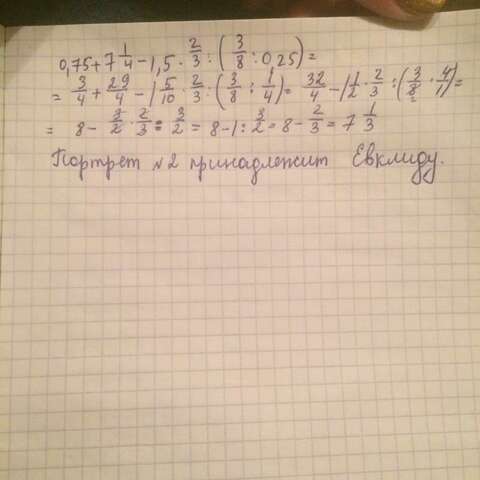 0,75+7 1/4 - 1,5 · 2/3 : (3/8 : 0,25) =
= 3/4 + 29/4 - 1 5/10 · 2/3 : (3/8 : 1/4) = 32/4 - 1 1/2 · 2/3 : (3/8 · 4/1) =
= 8 - 3/2 · 2/3 : 3/2 = 8 - 1 : 3/2 = 8 - 2/3 = 7 1/3
Портрет №2 принадлежит Евклиду.